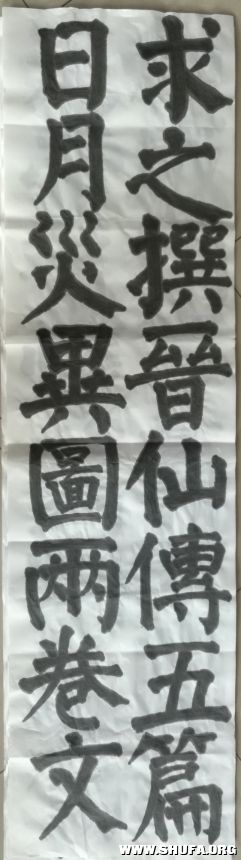 求之撰晉仙傳五篇
日月災異圖兩卷文
WWW.SHUFA.ORG